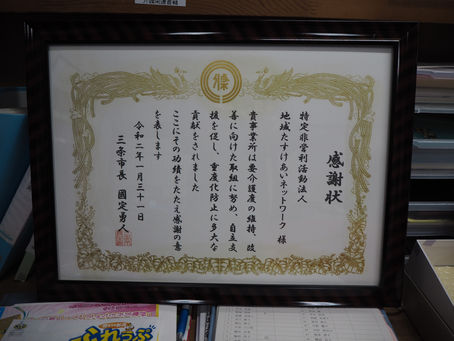 介護関連書籍
感謝状
特定非営利活動法人
地域たすけあいネットワーク 様
貴事業所は要介護度の維持、改
善に向けた取組に努め、自立支
援を促し、重度化防止に多大な
貢献をされました
ここにその功績をたたえ感謝の意
を表します
令和二年一月三十一日
三条市長 國定勇人